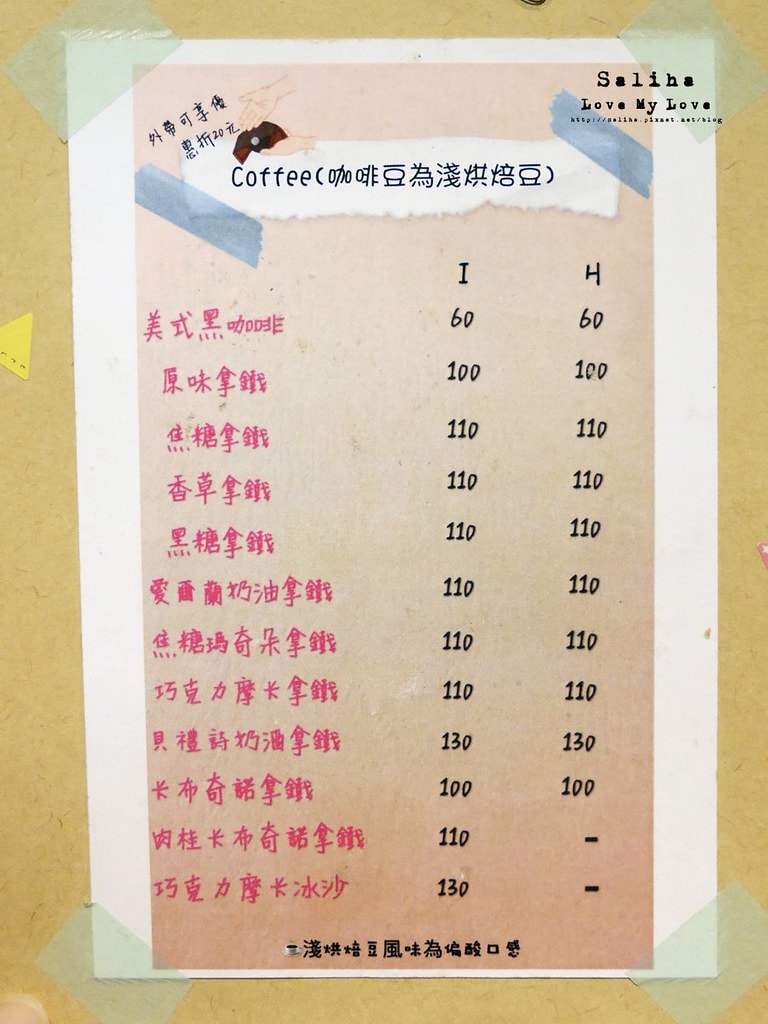 Saliha
Love My Love
http://saliha.pixnet.net/blog
外帶可享優
惠折20元
Coffee(咖啡豆為淺烘焙豆)
I H
美式黑咖啡 60 60
原味拿鐵 100 100
焦糖拿鐵 110 110
香草拿鐵 110 110
黑糖拿鐵 110 110
愛爾蘭奶油拿鐵 110 110
焦糖瑪奇朵拿鐵 110 110
巧克力摩卡拿鐵 110 110
貝禮詩奶酒拿鐵 130 130
卡布奇諾拿鐵 100 100
肉桂卡布奇諾拿鐵 110 -
巧克力摩卡冰沙 130 -
淺烘焙豆風味為偏酸口感